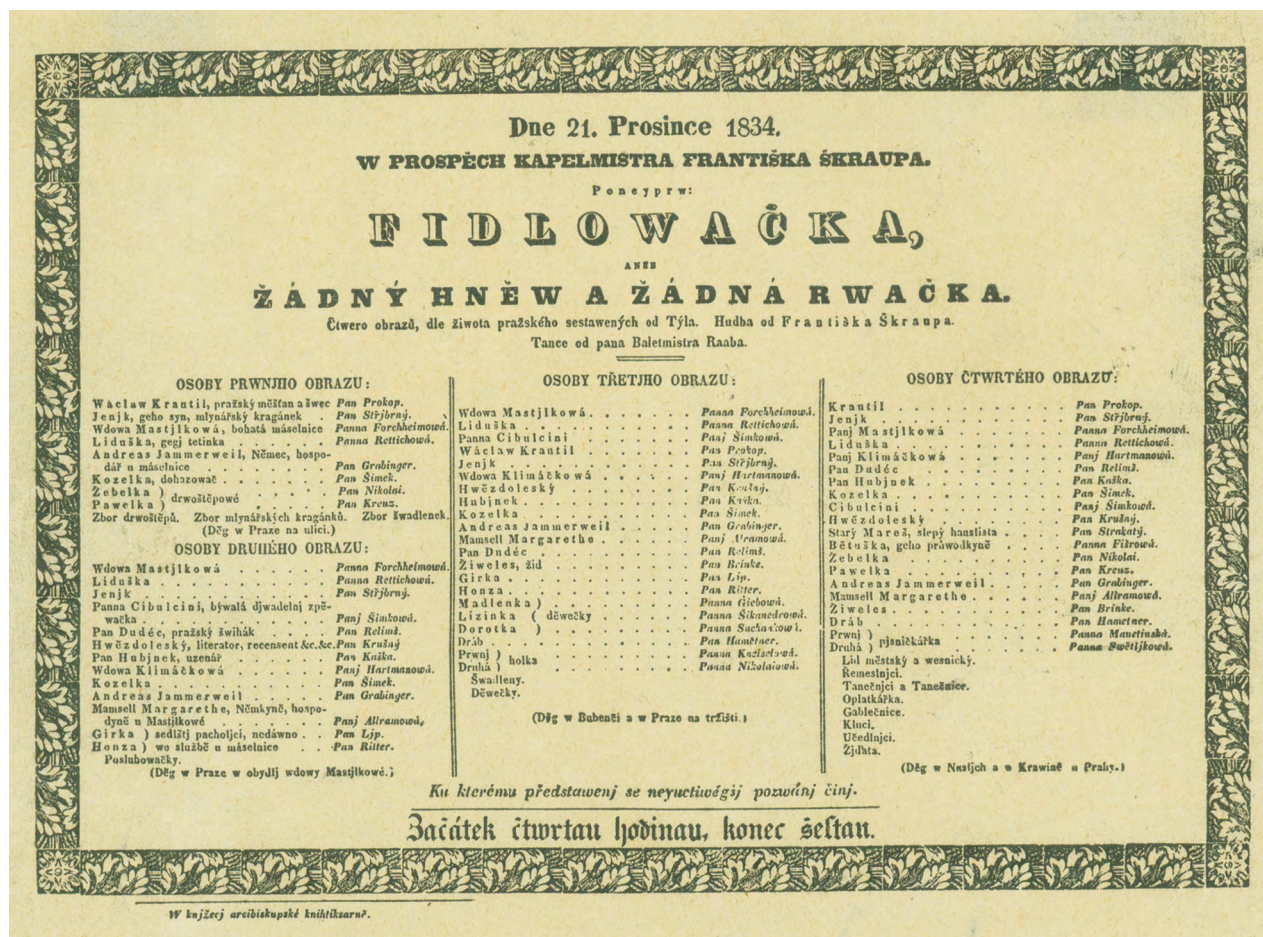 Dne 21. Prosince 1834.
W PROSPĚCH KAPELMISTRA FRANTIŠKA ŠKRAUPA.
Poneyprw:
FIDLOWAČKA,
ANEB
ŽÁDNÝ HNĚW A ŽÁDNÁ RWAČKA.
Čtwero obrazů, dle žiwota pražského sestawených od Týla. Hudba od Františka Škraupa.
Tance od pana Baletmistra Raaba.
OSOBY PRWNJHO OBRAZU:
Wácław Krautil, pražský měšťan a šwec Pan Prokop.
Jenjk, geho syn, mlynářský kragánek . Pan Střjbrný.
Wdowa Mastjlkowá, bohatá máselnice Panna Forchheimowá.
Liduška, gegj tetinka . . . . . . Panna Rettichowá.
Andreas Jammerweil, Němec, hospo-
dář u máselnice . . . . . . Pan Grabinger.
Kozelka, dohazowač . . . . . . Pan Šimek.
Žebelka ) drwoštěpowé . . . . . Pan Nikolai.
Pawelka ) Pan Kreuz.
Zbor drwoštěpů. Zbor mlynářských kragánků. Zbor šwadlenek.
(Děg w Praze na ulici.)
OSOBY DRUHÉHO OBRAZU:
Wdowa Mastjlkowá . . . . . . Panna Forchheimowá.
Liduška . . . . . . . . . . Panna Rettichowá.
Jenjk . . . . . . . . . . . Pan Střjbrný.
Panna Cibulcini, býwalá djwadelnj zpě-
wačka . . . . . . . . . Panj Šimkowá.
Pan Dudéc, pražský šwihák . . . . Pan Relimš.
Hwězdoleský, literator, recensent &c.&c. Pan Krušný
Pan Hubjnek, uzenář . . . . . Pan Kaška.
Wdowa Klimáčkowá . . . . . . Panj Hartmanowá.
Kozelka . . . . . . . . . . Pan Šimek.
Andreas Jammerweil . . . . . Pan Grabinger.
Mamsell Margarethe, Němkyně, hospo-
dyně u Mastjlkowé . . . . . Panj Allramowá.
Girka ) sedlštj pacholjci, nedáwno . . Pan Ljp.
Honza ) we službě u máselnice . . Pan Ritter.
Posluhowačky.
(Děg w Praze w obydlj wdowy Mastjlkowé.)
OSOBY TŘETJHO OBRAZU:
Wdowa Mastjlkowá . . . . . . . Panna Forchheimowá.
Liduška . . . . . . . . . . Panna Rettichowá.
Panna Cibulcini . . . . . . . Panj Šimkowá.
Wácław Krautil . . . . . . . Pan Prokop.
Jenjk . . . . . . . . . . . Pan Střjbrný.
Wdowa Klimáčkowá . . . . . . Panj Hartmanowá.
Hwězdoleský . . . . . . . . Pan Krušný.
Hubjnek . . . . . . . . . . Pan Kaška.
Kozelka . . . . . . . . . . Pan Šimek.
Andreas Jammerweil . . . . . . Pan Grabinger.
Mamsell Margarethe . . . . . . Panj Allramowá.
Pan Dudéc . . . . . . . . . Pan Relimš.
Žiweles, žid . . . . . . . . Pan Brinke.
Girka . . . . . . . . . . . Pan Ljp.
Honza . . . . . . . . . . . Pan Ritter.
Madlenka ) . . . . . . . . Panna Giebowá.
Lizinka ( děwečky . . . . . . Panna Šikanedrowá.
Dorotka ) . . . . . . . . Panna
Dráb . . . . . . . . . . . Pan Hametner.
Prwnj ) holka . . . . . . . . Panna
Druhá ) . . . . . . . . Panna Nikolaiowá.
Šwadleny.
Děwečky.
(Děg w Bubenči a w Praze na tržišti.)
OSOBY ČTWRTÉHO OBRAZU:
Krautil . . . . . . . . . . Pan Prokop.
Jenjk . . . . . . . . . . . Pan Střjbrný.
Panj Mastjlkowá . . . . . . . Panna Forchheimowá.
Liduška . . . . . . . . . . Panna Rettichowá.
Panj Klimáčkowá . . . . . . . Panj Hartmanowá.
Pan Dudéc . . . . . . . . . Pan Relimš.
Pan Hubjnek . . . . . . . . Pan Kaška.
Kozelka . . . . . . . . . . Pan Šimek.
Cibulcini . . . . . . . . . Panj Šimkowá.
Hwězdoleský . . . . . . . . Pan Krušný.
Starý Mareš, slepý hauslista . . . . Pan Strakatý.
Bětuška, geho průwodkyně . . . . Panna Fišrowá.
Žebelka . . . . . . . . . . Pan Nikolai.
Pawelka . . . . . . . . . . Pan Kreuz.
Andreas Jammerweil . . . . . . Pan Grabinger.
Mamsell Margarethe . . . . . . Panj Allramowá.
Žiweles . . . . . . . . . . Pan Brinke.
Dráb . . . . . . . . . . . Pan Hametner.
Prwnj ) pjsničkářka . . . . . . Panna Manetinská.
Druhá ) . . . . . . Panna Swětljkowá.
Lid městský a wesnický.
Řemeslnjci.
Tanečnjci a Tanečnice.
Oplatkářka.
Gablečnice.
Kluci.
Učedlnjci.
Židata.
(Děg w Nusljch a w Krawině u Prahy.)
Ku kterému představenj se neyuctiwěgšj pozwánj činj.
Začátek čtwrtau hodinau, konec šestau.
W knjžecj arcibiskupské knihtiskarně.